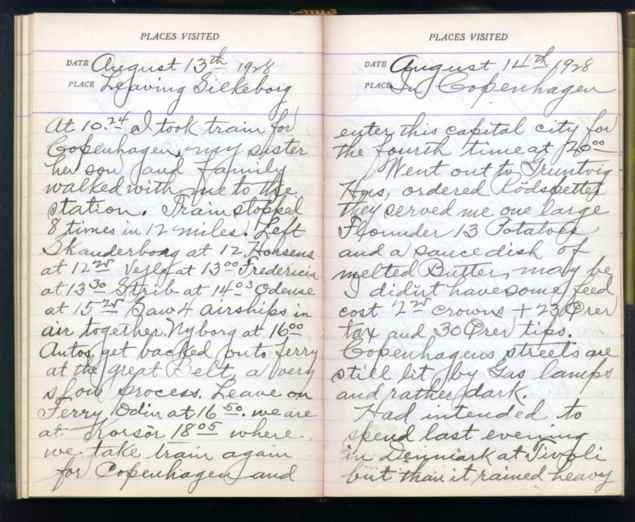 PLACES VISITED
DATE August 13th 1928
PLACE Leaving Silkeborg
At 10.24 I took train for
Copenhagen, my sister
her son and family
walked with me to the
station. Train stopped
8 times in 12 miles. Left
Skanderborg at 12. Horsens
at 12 Vejle at 13 00 Fredericia
at 13 30 Strib at 14 03 Odense
at 15 25 Saw 4 airships in
air together. Nyborg at 16 00
Autos get backed onto ferry
at the great Belt, a very
slow process. Leave on
Ferry Odin at 16 50. we are
at Korsör 18 05 where
we take train again
for Copenhagen and
PLACES VISITED
DATE August 14th 1928
PLACE In Copenhagen
enter this capital city for
the fourth time at 20 00
Went out to Gruntvig
Hus, ordered Rödspetter
They served me one large
Flounder 13 Potatoes
and a sauce dish of
melted Butter, may be
I didn't have some feed
cost 2 25 crowns + 23 Örer
tax and 30 Örer tips.
Copenhagens streets are
still lit by Gas lamps
and rather dark.
Had intended to
spend last evening
in Denmark at Tivoli
but than it rained heavy